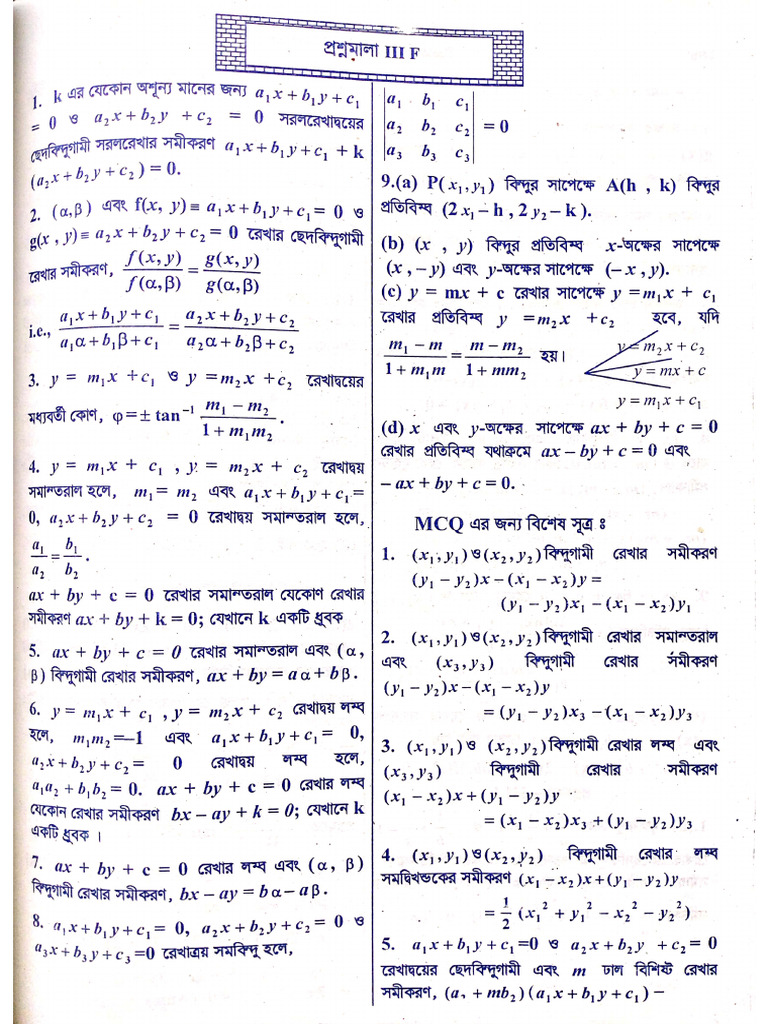 প্রশ্নমালা III F
1. k এর যেকোন অশূন্য মানের জন্য a₁x + b₁y + c₁
= 0 ও a₂x + b₂y + c₂ = 0 সরলরেখাদ্বয়ের
ছেদবিন্দুগামী সরলরেখার সমীকরণ a₁x + b₁y + c₁ + k
(a₂x + b₂y + c₂) = 0.
2. (α,β) এবং f(x, y) ≡ a₁x + b₁y + c₁ = 0 ও
g(x , y) ≡ a₂x + b₂y + c₂ = 0 রেখার ছেদবিন্দুগামী
রেখার সমীকরণ, f(x, y)/f(α,β) = g(x, y)/g(α,β)
i.e., (a₁x + b₁y + c₁)/(a₁α + b₁β + c₁) = (a₂x + b₂y + c₂)/(a₂α + b₂β + c₂)
3. y = m₁x + c₁ ও y = m₂x + c₂ রেখাদ্বয়ের
মধ্যবর্তী কোণ, φ = ± tan⁻¹ (m₁ − m₂)/(1 + m₁m₂) .
4. y = m₁x + c₁ , y = m₂x + c₂ রেখাদ্বয়
সমান্তরাল হলে, m₁ = m₂ এবং a₁x + b₁y + c₁ =
0, a₂x + b₂y + c₂ = 0 রেখাদ্বয় সমান্তরাল হলে,
a₁/a₂ = b₁/b₂ .
ax + by + c = 0 রেখার সমান্তরাল যেকোণ রেখার
সমীকরণ ax + by + k = 0; যেখানে k একটি ধ্রুবক
5. ax + by + c = 0 রেখার সমান্তরাল এবং (α,
β) বিন্দুগামী রেখার সমীকরণ, ax + by = aα + bβ.
6. y = m₁x + c₁ , y = m₂x + c₂ রেখাদ্বয় লম্ব
হলে, m₁m₂ = –1 এবং a₁x + b₁y + c₁ = 0,
a₂x + b₂y + c₂ = 0 রেখাদ্বয় লম্ব হলে,
a₁a₂ + b₁b₂ = 0. ax + by + c = 0 রেখার লম্ব
যেকোন রেখার সমীকরণ bx – ay + k = 0; যেখানে k
একটি ধ্রুবক ।
7. ax + by + c = 0 রেখার লম্ব এবং (α, β)
বিন্দুগামী রেখার সমীকরণ, bx – ay = bα – aβ.
8. a₁x + b₁y + c₁ = 0, a₂x + b₂y + c₂ = 0 ও
a₃x + b₃y + c₃ =0 রেখাত্রয় সমবিন্দু হলে,
| a₁ b₁ c₁ |
| a₂ b₂ c₂ | = 0
| a₃ b₃ c₃ |
9.(a) P( x₁, y₁) বিন্দুর সাপেক্ষে A(h , k) বিন্দুর
প্রতিবিম্ব (2 x₁ – h , 2 y₂ – k ).
(b) (x , y) বিন্দুর প্রতিবিম্ব x-অক্ষের সাপেক্ষে
(x , – y) এবং y-অক্ষের সাপেক্ষে (– x , y).
(c) y = mx + c রেখার সাপেক্ষে y = m₁x + c₁
রেখার প্রতিবিম্ব y = m₂x + c₂ হবে, যদি
(m₁ − m)/(1 + m₁m) = (m − m₂)/(1 + mm₂) হয়।
y = m₂x + c₂
y = mx + c
y = m₁x + c₁
(d) x এবং y-অক্ষের সাপেক্ষে ax + by + c = 0
রেখার প্রতিবিম্ব যথাক্রমে ax – by + c = 0 এবং
– ax + by + c = 0.
MCQ এর জন্য বিশেষ সূত্র ঃ
1. (x₁, y₁) ও (x₂, y₂) বিন্দুগামী রেখার সমীকরণ
(y₁ − y₂)x − (x₁ − x₂)y =
(y₁ − y₂)x₁ − (x₁ − x₂)y₁
2. (x₁, y₁) ও (x₂, y₂) বিন্দুগামী রেখার সমান্তরাল
এবং (x₃, y₃) বিন্দুগামী রেখার সমীকরণ
(y₁ − y₂)x − (x₁ − x₂)y
= (y₁ − y₂)x₃ − (x₁ − x₂)y₃
3. (x₁, y₁) ও (x₂, y₂) বিন্দুগামী রেখার লম্ব এবং
(x₃, y₃) বিন্দুগামী রেখার সমীকরণ
(x₁ − x₂)x + (y₁ − y₂)y
= (x₁ − x₂)x₃ + (y₁ − y₂)y₃
4. (x₁, y₁) ও (x₂, y₂) বিন্দুগামী রেখার লম্ব
সমদ্বিখন্ডকের সমীকরণ (x₁ − x₂)x + (y₁ − y₂)y
= 1/2 (x₁² + y₁² − x₂² − y₂²)
5. a₁x + b₁y + c₁ =0 ও a₂x + b₂y + c₂ = 0
রেখাদ্বয়ের ছেদবিন্দুগামী এবং m ঢাল বিশিষ্ট রেখার
সমীকরণ, (a₂ + mb₂) (a₁x + b₁y + c₁) –